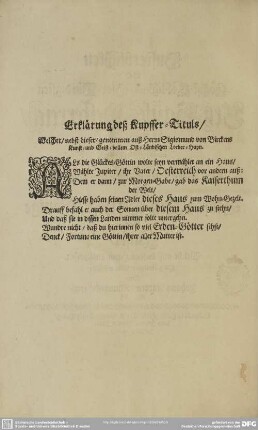 Erklärung deß Kupffer-Tituls/
Welcher/ nebst dieser/ genommen auß Herrn Sigismund von Bircken
Kunst-und Geist-
ALs die Glückes-Göttin wolte seyn vermählet an ein Haus/
Wählte Jupiter/ ihr Vater/ Oesterreich vor andern auß:
Dem er dann/ zur Morgen-Gabe/ gab das Kaiserthum
der Welt/
Hiesse haben seinen Adler dieses Haus zum Wohn-Gezelt.
Drauff befahl er auch der Sonnen über diesem Haus zu stehn/
Und daß sie in dessen Landen nimmer solte untergehn.
Wundre nicht/ daß du hierinnen so viel Erden-Götter sihst/
Denck/ Fortun eine Göttin/ ihrer aller Mutter ist.
DFG